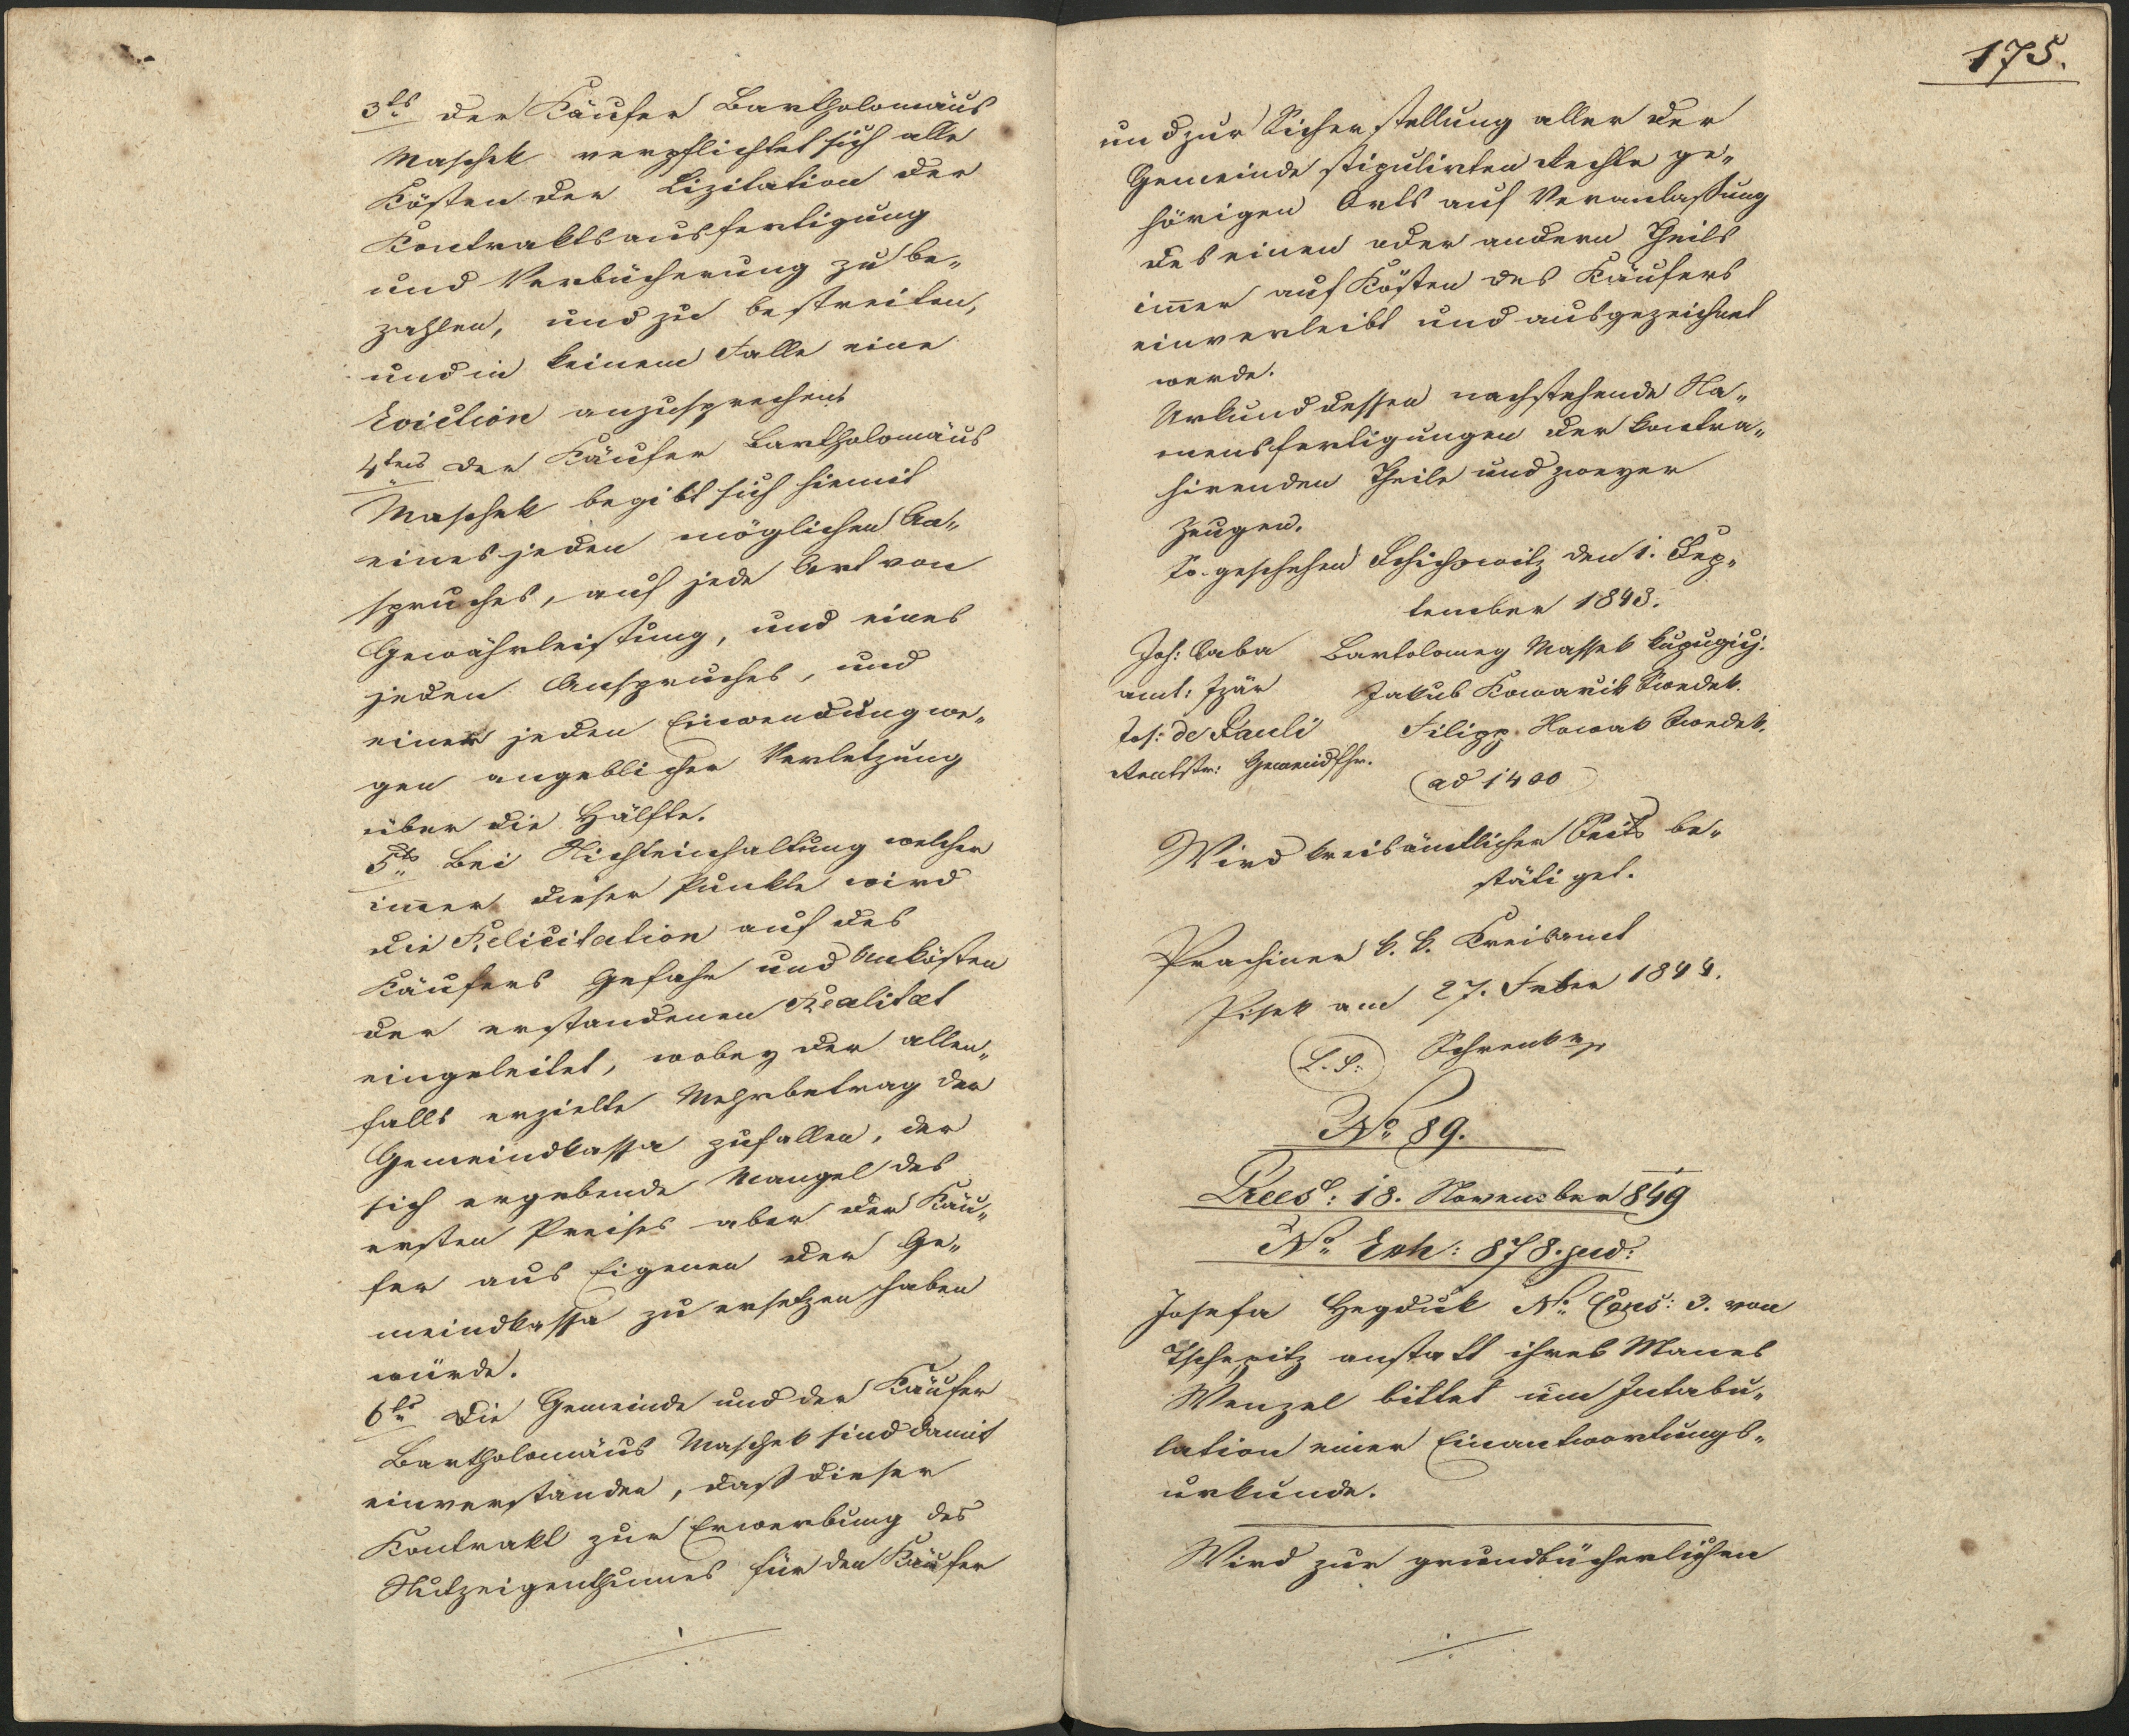 3ts der Käufer Bartholomäus
Maschek verpflichtet sich alle
Kösten der Lizitation der
Kontraktsausfertigung
und Verbücherung zu be„
zahlen, und zu bestreiten,
und in keinem Falle eine
Eviction anzusprechen
4tens der Käufer Bartholomäus
Maschek begibt sich hiemit
eines jeden möglichen An„
spruches, auf jede Art von
Gewährleistung, und eines
jeden Anspruches, und
einer jeden Einwendung we„
gen angeblicher Verletzung
über die Hälfte.
5ts Bei Nichteinhaltung welcher
immer dieser Punkte wird
die Relicitation auf des
Käufers Gefahr und Unkösten
der erstandenen Realitæt
eingeleitet, wobey der allen„
falls erzielte Mehrbetrag der
Gemeindkassa zufallen, der
sich ergebende Mangel des
ersten Preises aber der Käu„
fer aus Eigenen der Ge„
meindkassa zu ersetzen haben
würde.
6ts Die Gemeinde und der Käufer
Bartholomäus Maschek sind damit
einverstanden, daß dieser
Kontrakt zur Erwerbung des
Nutzeigenthumes für den Käufer
175.
und zur Sicherstellung aller der
Gemeinde stipulirten Rechte ge„
hörigen Orts auf Veranlaßung
des einen oder andern Theils
immer auf Kösten des Käufers
einverleibt und ausgezeichnet
werde.
Urkund dessen nachstehende Na„
mensfertigungen der kontra„
hirenden Theile und zweyer
Zeugen.
So geschehen Schichowitz den 1. Sep„
tember 1843.
Joh: Caba Bartolomey Massek
amt: Jakub Kowarik Swedek.
Jos: de Pauli Filipp Nowak Swedek.
Gemeindschr.
ad 1400
Wird kreisämtlicher Seits be„
stätiget.
Prachiner k. k. Kreisamt
Pisek am 27. Feber 1844.
L. S. Schrenk mp
No 89.
Præs: 18. November 849
No Exh: 878. jud:
Josefa Hegduk No Cons: 3. von
Tschepitz anstatt ihres Manes
Wenzel bittet um Intabu„
lation einer Einantwortungs„
urkunde.
Wird zur grundbücherlichen